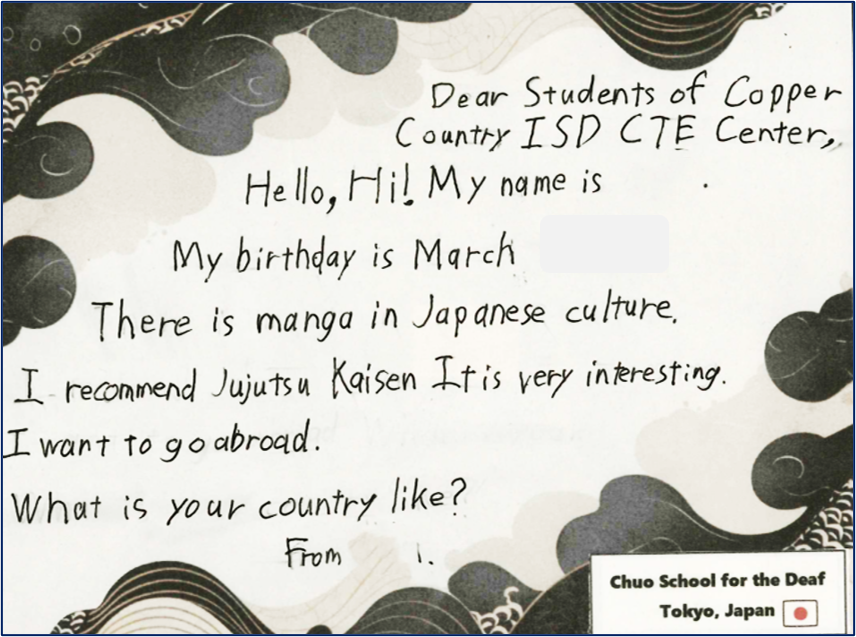 Dear Students of Copper
Country ISD CTE Center,
Hello, Hi! My name is .
My birthday is March
There is manga in Japanese culture.
I recommend Jujutsu Kaisen It is very interesting.
I want to go abroad.
What is your country like?
From .
Chuo School for the Deaf
Tokyo, Japan